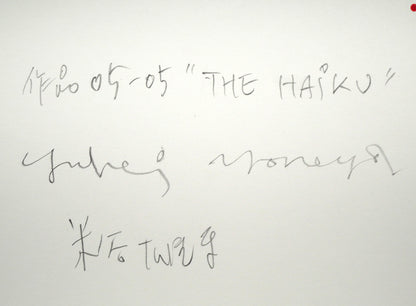 作品 05-05 "THE HAiKU"
Yuhei Yoneya
米谷